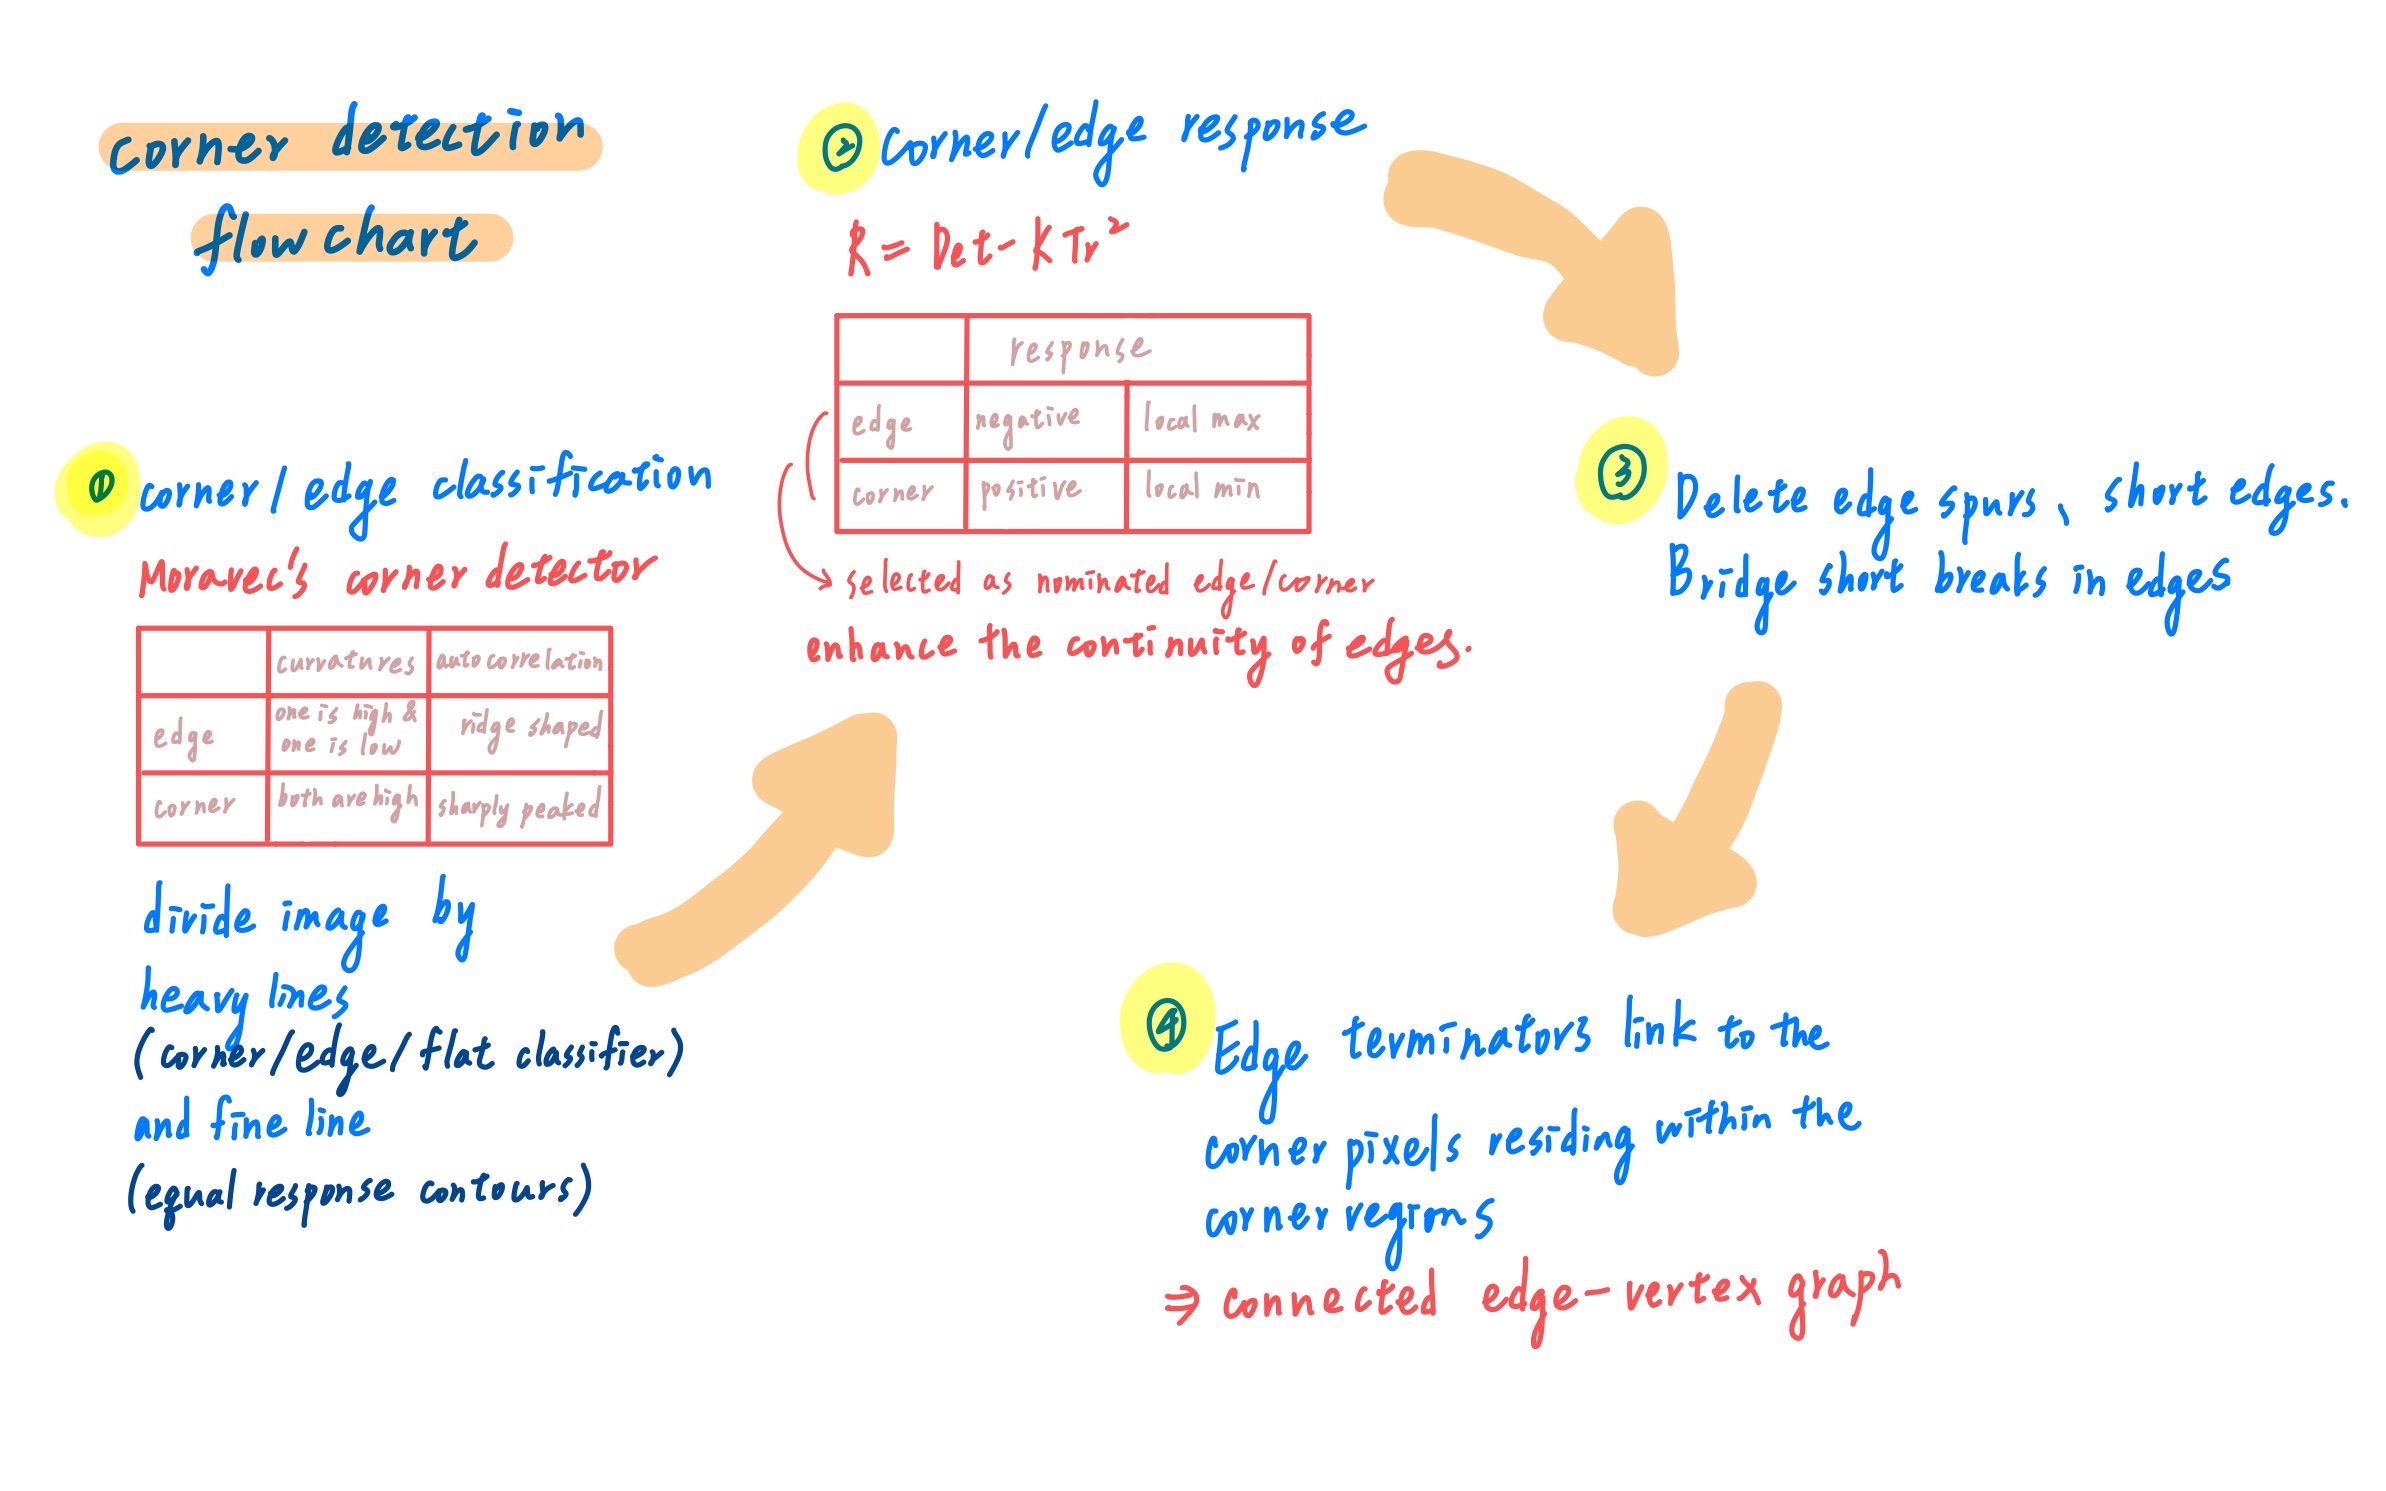 corner detection
flow chart
① corner / edge classification
Moravec's corner detector
curvatures autocorrelation
edge one is high & one is low ridge shaped
corner both are high sharply peaked
divide image by
heavy lines
(corner/edge/flat classifier)
and fine line
(equal response contours)
② Corner/edge response
R = Det - KTr²
response
edge negative local max
corner positive local min
→ selected as nominated edge/corner
enhance the continuity of edges.
③ Delete edge spurs、short edges.
Bridge short breaks in edges
④ Edge terminators link to the
corner pixels residing within the
corner regions
⇒ connected edge-vertex graph